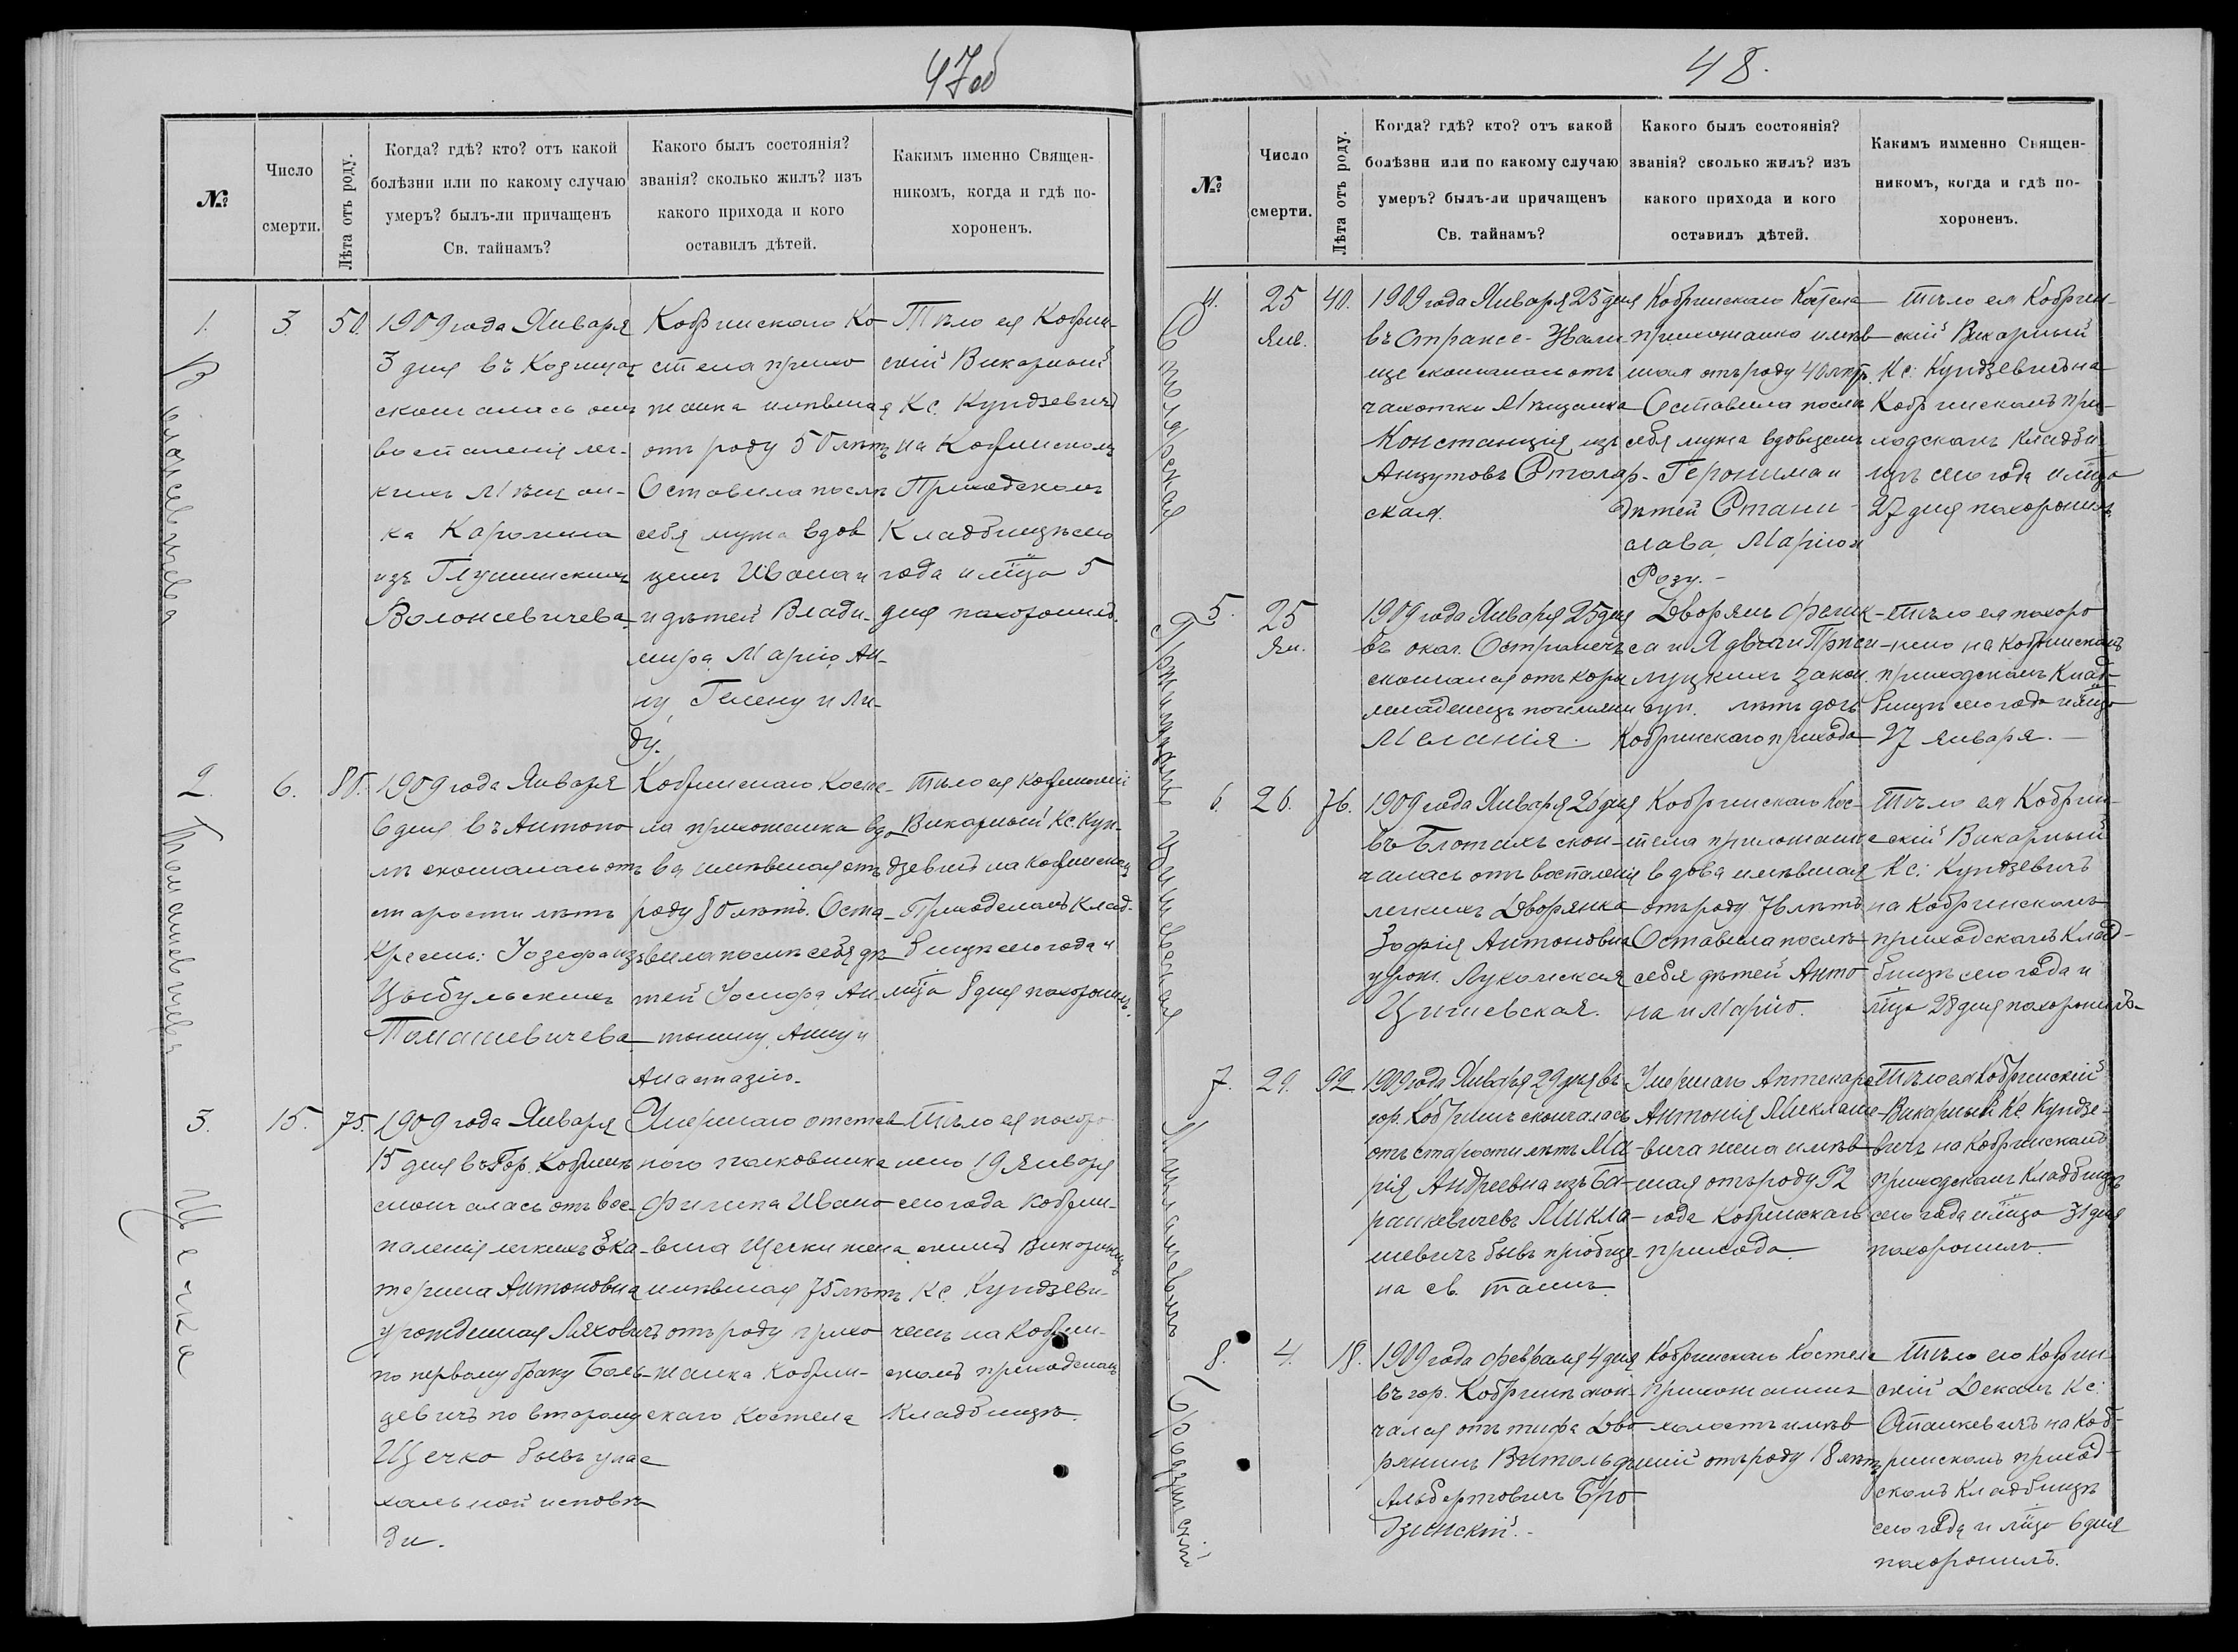 47об
№
Число смерти.
Лѣта отъ роду.
Когда? гдѣ? кто? отъ какой
болѣзни или по какому случаю
умеръ? былъ-ли причащенъ
Св. тайнамъ?
Какого былъ состоянія?
званія? сколько жилъ? изъ
какого прихода и кого
оставилъ дѣтей.
Какимъ именно Священ-
никомъ, когда и гдѣ по-
хороненъ.
1.
3
50.
1909 года Января
3 дня въ
скончалась отъ
воспаленія лег-
кихъ Мѣщан-
ка Каролина
изъ Глушинскихъ
Волонсевичева
Кобринскаго Ко-
стела прихо
жанка имѣвшая
отъ роду 50 лѣтъ
Оставила послѣ
себя мужа вдов
цемъ Ивана и
и дѣтей Влади-
мира, Марію, Ан-
ну, Гелену и Ли-
ду.
Тѣло ея Кобрин-
скій Викарный
Кс. Кундзевичъ
на Кобринскомъ
Приходскомъ
Кладбищѣ сего
года и м-ца 5
дня похоронилъ.
Волонсевичева
2.
6.
80.
1909 года Января
6 дня въ Антопо
лѣ скончалась отъ
старости лѣтъ
Крестн: Іозефа изъ
Цыбульскихъ
Томашевичева
Кобринскаго Косте-
ла прихожанка вдо
ва имѣвшая отъ
роду 80 лѣтъ. Оста-
вила послѣ себя дѣ
тей Іосифа, Ан-
тонину, Анну и
Анастазію.
Тѣло ея Кобринскій
Викарный Кс. Кун-
дзевичъ на Кобринскомъ
Приходскомъ Клад-
бищѣ сего года и
м-ца 8 дня похоронилъ.
Томашевичева
3.
15.
75.
1909 года Января
15 дня въ Гор. Кобринѣ
скончалась отъ вос-
паленія легкихъ Ека-
терина Антоновна
урожденная Ляховичъ
по первому браку Боль-
цевичъ по второму
Щечко бывъ у пас
хальной исповѣ
ди.
Умершаго отстав
ного полковника
Филипа Ивано
вича Щечки жена
имѣвшая 75 лѣтъ
отъ роду прихо
жанка Кобрин-
скаго Костела
Тѣло ея похоро
нено 19 Января
сего года Кобрин-
скимъ Викарнымъ
Кс. Кундзеви-
чемъ на Кобрин-
скомъ приходскомъ
Кладбищѣ.
Щечка
48.
№
Число смерти.
Лѣта отъ роду.
Когда? гдѣ? кто? отъ какой
болѣзни или по какому случаю
умеръ? былъ-ли причащенъ
Св. тайнамъ?
Какого былъ состоянія?
званія? сколько жилъ? изъ
какого прихода и кого
оставилъ дѣтей.
Какимъ имменно Священ-
никомъ, когда и гдѣ по-
хороненъ.
4.
25
Янв.
40.
1909 года Января 25 дня
скончалась отъ
чахотки Мѣщанка
Констанція изъ
Анзутовъ Столяр-
ская.
Кобринскаго Костела
прихожанка имѣв
шая отъ роду 40 лѣтъ.
Оставила послѣ
себя мужа вдовцемъ
Геронима и
дѣтей Стани-
слава, Марію и
Розу.-
Тѣло ея Кобрин-
скій Викарный
Кс: Кундзевичъ на
Кобринскомъ При-
ходскомъ Кладби
щѣ сего года и м-ца
27 дня похоронилъ
Столярская
5.
25
Ян.
1909 года Января 25 дня
въ окол.
скончался отъ кори
младенецъ
Меланія.
Дворянъ Феликса и Ядвиги
закон.
суп. дочь
Кобринскаго прихода
Тѣло ея похоро
нено на Кобринскомъ
приходскомъ Клад-
бищѣ сего года и м-ца
27 Января.
6.
26.
76.
1909 года Января 26 дня
въ Блотахъ скон-
чалась отъ воспаленія
легкихъ Дворянка
Зофія Антоновна
урож. Лукомская
Цишевская.
Кобринскаго Кос-
тела прихожанка
вдова имѣвшая
отъ роду 76 лѣтъ
Оставила послѣ
себя дѣтей Анто
на и Марію.
Тѣло ея Кобрин-
скій Викарный
Кс: Кундзевичъ
на Кобринскомъ
приходскомъ Клад-
бищѣ сего года и
м-ца 28 дня похоронилъ
Цишевская
7.
29.
92
1909 года Января 29 дня въ
гор. Кобринѣ скончалась
отъ старости лѣтъ Ма-
рія Андреевна изъ Ба-
ранкевичевъ Микла-
шевичъ бывъ пріобще-
на св. таинъ.
Умершаго Аптекаря
Антонія Миклаше-
вича жена имѣв
шая отъ роду 92
года Кобринскаго
прихода.
Тѣло ея Кобринскій
Викарный Кс. Кундзе-
вичъ на Кобринскомъ
приходскомъ Кладбищѣ
сего года и м-ца 31 дня
похоронилъ.
Миклашевичъ
8.
4.
18.
1909 года Февраля 4 дня
въ гор. Кобринѣ скон-
чался отъ тифа Дво-
рянинъ Витольдъ
Альбертовичъ Бро
дзинскій.-
Кобринскаго Костела
прихожанинъ
холостъ имѣв
шій отъ роду 18 лѣтъ
Тѣло его Кобрин-
скій Деканъ Кс:
на Коб-
ринскомъ приход-
скомъ Кладбищѣ
сего года и м-ца 6 дня
похоронилъ.
Бродзинскій